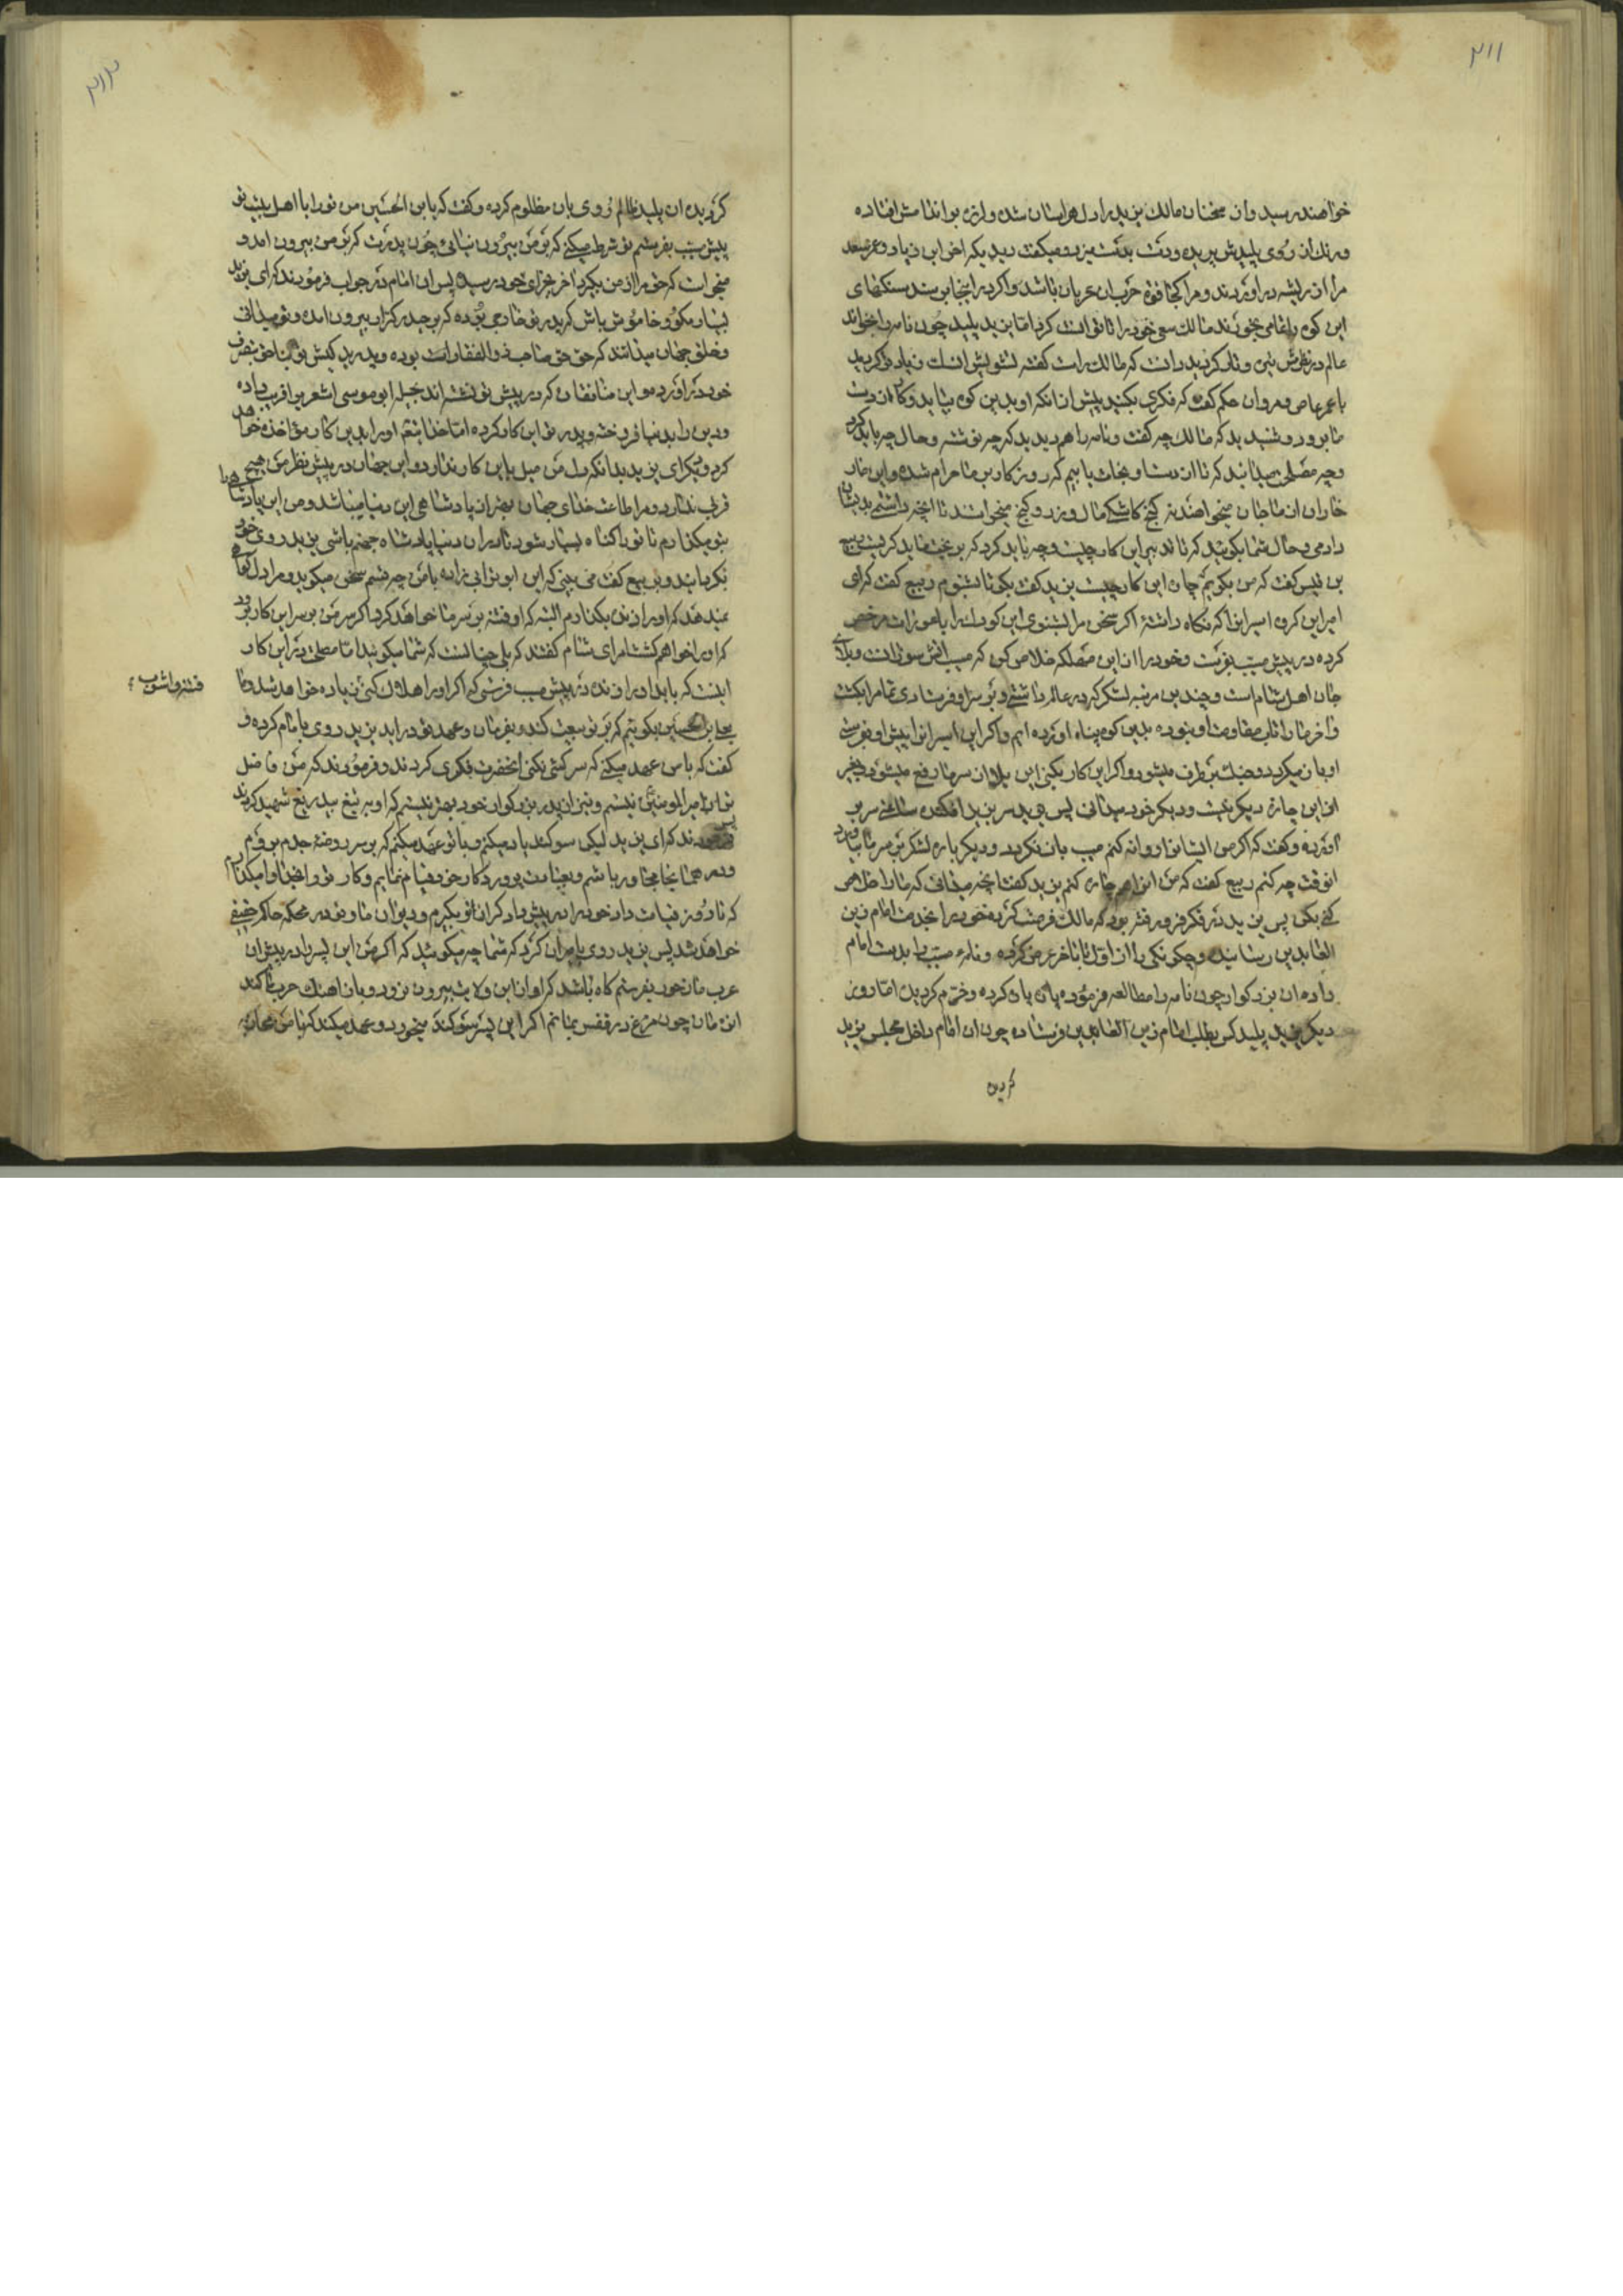 ۳۱۱
خواهند رسید و از سخنان مالک یزید را دل هراسان شده و لرزه بر اندامش افتاده
و رنک از روی پلیدش پریده و دست بدست میزد و میکفت دیدیکه اخر ابن زیاد و عمر سعد
مرا از ریشه در اوردند و مرا کجا قوة حرب ان عربان باشد و اکر در اینجا بی سند سنکهای
این کوه را تمامی بخورند مالک سعی خود را نتوانست کرد اما یزید پلید چون نامه را بخواند
عالم در نظرش تیره و تار کردید دانست که مالک راست کفته تشویش انست زیاد تر کردید
با عمر عاص و مروان حکم کفت که فکری بکنید پیش از انکه او بدین کوه بیاید و کار از دست
ما برود و شنیدید که مالک چه کفت و نامه را هم دیدید که چه نوشته و حال چه باید کرد
و چه مصلحت میدانید که تا از دست او نجات یابیم که روزکار بر ما حرام شده و این
خاران از ما جان میخواهند نه کنج کاشکی مال و زر و کنج میخواستند تا انچه داشتم بدیشان
دادمی و حال شما بکوئید که تدبیر این کار چیست و چه باید کرد که بر بخت ما بد کردیست ربیع
بن قیس کفت که من بکویم چاره این کار چیست یزید کفت بکو تا بشنوم ربیع کفت که ای
امیر این کروه اسیرانرا که نکاه داشتهٔ اکر سخن مرا بشنوی این کودکانرا با عورات مرخص
کرده در پیش مسیب بفرست و خود را از این مهلکه خلاص کن که مسیب اتش سوزانست و بلای
جان اهل شام است و چندین مرتبه لشکر که در عالم داشتی و بر سر او فرستادی تمام را بکشت
و اخر ما را تاب مقاومت او نبوده بدین کوه پناه اورده ایم و اکر این اسیرانرا پیش او بفرستی
او باز میکردد و جنک بر طرف میشود و اکر این کار بکنی این بلا از سر ما رفع میشود بغیر
از این چاره دیکر نیست و دیکر خود میدانی پس یزید سر بزیر افکند ساعتی سر بر
اورده و کفت که اکر من ایشانرا روانه کنم مسیب باز نکردد و دیکر باره لشکر بر سر ما بیاورد
انوقت چه کنم ربیع کفت که من انرا هم چاره کنم یزید کفت انچه میدانی که ما را خلاص
کنی بکن پس یزید در فکر فرو رفته بود که مالک فرصت کرده خود را بخدمت امام زین
العابدین رسانید و چکونکی را از اول تا باخر عرض کرده و نامهٔ مسیب را بدست امام
داده ان بزرکوار چون نامه را مطالعه فرموده پاره پاره کرده و خرم کردید اما روز
دیکر یزید پلید کس بطلب امام زین العابدین فرستاده چون ان امام داخل مجلس یزید
کردید
۳۱۲
کردیده ان پلید ظالم روی بان مظلوم کرده و کفت که یابن الحسین من تو را با اهل بیت تو
پیش مسیب بفرستم تو شرط میکنی که بر من بیرون نیائی چون پدرت که بر من بیرون امد و
میخواست که حق مرا از من بکیرد اخر بجزای خود رسید پس ان امام در جواب فرمودند که ای یزید
بسیار مکو و خاموش باش که پدر تو خارجی بوده که بر حیدر کرار بیرون امده و تو میدانی
و خلق جهان میدانند که حق حق صاحب ذوالفقار است بوده و پدر بد کیش تو بناحق بتصرف
خود در اورده و این منافقان که در پیش تو نشسته اند بحیله ابو موسی اشعریرا فریب داده
و دین را بدنیا فروخته و پدر تو این کار کرده اما خدا بتعم او را بدین کار مؤاخذه خواهد
کرد و دیکر ای یزید بدانکه دل من میل باین کار ندارد و این جهان در پیش نظر من هیچ
قربی ندارد و مرا طاعت خدای جهان بهتر از پادشاهی این دنیا میباشد و من این پادشاهیرا
بتو میکذارم تا تو را کناه بسیار شود تا در ان دنیا پادشاه جهنم باشی یزید روی خود
بکردانید و بربیع کفت می بینی که این ابو ترابی زاده با من چه قسم سخن میکوید و مرا دل کواهی
نمیدهد که او را زنده بکذارم البته که او فتنه بر سر ما خواهد کرد اکر سر من بر سر این کار برود
که او را خواهم کشت امرای شام کفتند که بلی چنانست که شما میکوئید اما مصلحت در این کار
اینست که باید او را زنده در پیش مسیب فرستی که اکر او را هلاک کنی زیاده خواهد شد و ما
فتنه و اشوب
بعلی بن الحسین بکوئیم که بر تو بیعت کند و بفرمان و عهد تو در اید یزید روی بامام کرده و
کفت که با من عهد میکنی که سرکشی نکنی انحضرت فکری کردند و فرمودند که من فاضل
تر از امیر المومنین نیستم و نیز از پدر بزرکوار خود بهتر نیستم که او به تیغ بیدریغ شهید کردند
پس فرمودند که ای یزید لیکن سوکند یاد میکنم و با تو عهد میکنم که بر سر روضهٔ جدم بروم
و در همانجا مجاور باشم و بعبادت پروردکار خود قیام نمایم و کار تو را بخدا وا میکذارم
که تا روز قیامت داد خود را در پیش دادکر از تو بکیرم و دیوان ما و تو در محکمه حاکم حقیقی
خواهد شد پس یزید روی بامیران کرد که شما چه میکوئید که اکر من این پسر را در پیش ان
عرب بفرستم کاه باشد که او از این ولایت بیرون نرود و باز اهنک حرب ما کند
ان زمان چون مرغ در قفس بمانم اکر این پسر سوکند میخورد و عهد میکند که با من محاربه